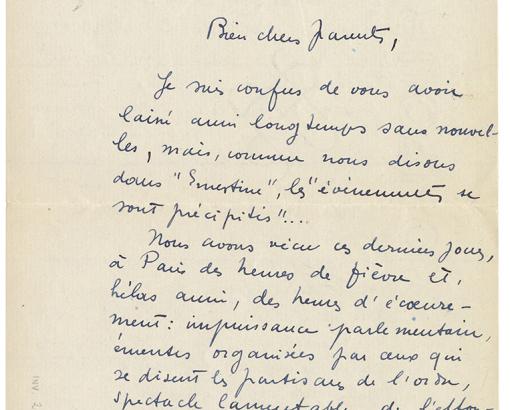 Bien chers parents,
Je suis confus de vous avoir
laissé aussi longtemps sans nouvel-
les, mais, comme nous disons
dans "Ernestine", les "évènements se
sont précipités"...
Nous avons vécu ces derniers jours,
à Paris des heures de fièvre et,
hélas aussi, des heures d'écœure-
ment: impuissance parlementaire,
émeutes organisées par ceux qui
se disent les partisans de l'ordre,
spectacle lamentable de l'effon-
INV